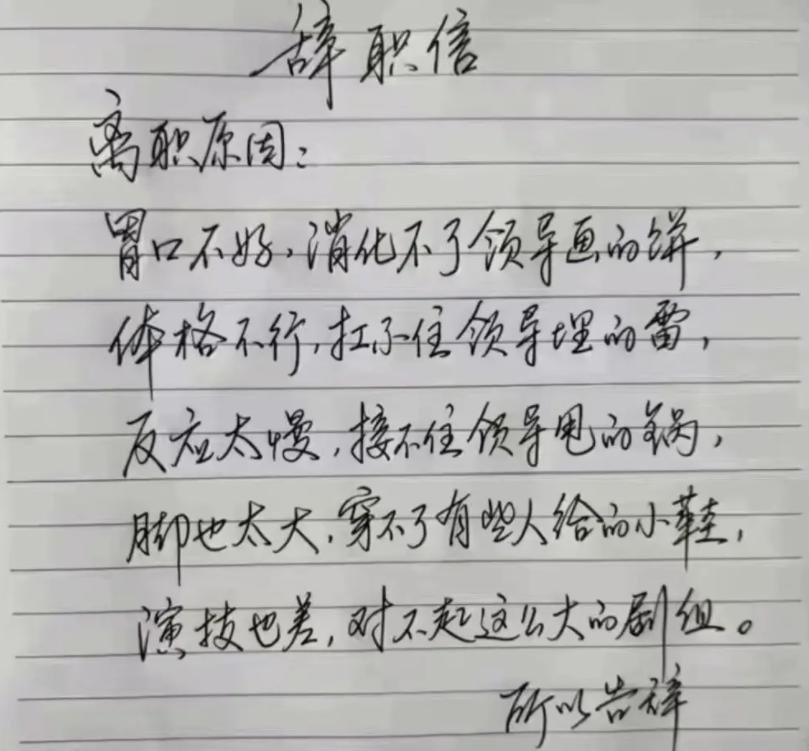 辞职信
离职原因：
胃口不好，消化不了领导画的饼，
体格不行，扛不住领导埋的雷，
反应太慢，接不住领导甩的锅，
脚也太大，穿不了有些人给的小鞋，
演技也差，对不起这么大的剧组。
所以告辞